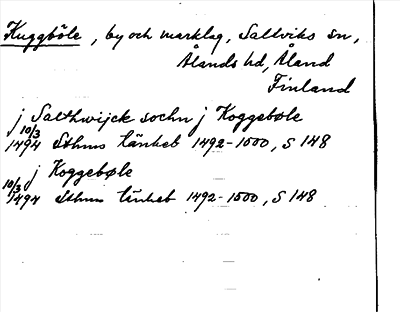 Kuggböle, by och marklag, Saltviks sn,
Ålands hd, Åland
Finland
j Salthwijck sochn j Koggebøle
10/3 1494 Sthms tänkeb 1492-1500, S 148
j Koggebøle
10/3 1494 Sthms tänkeb 1492-1500, S 148